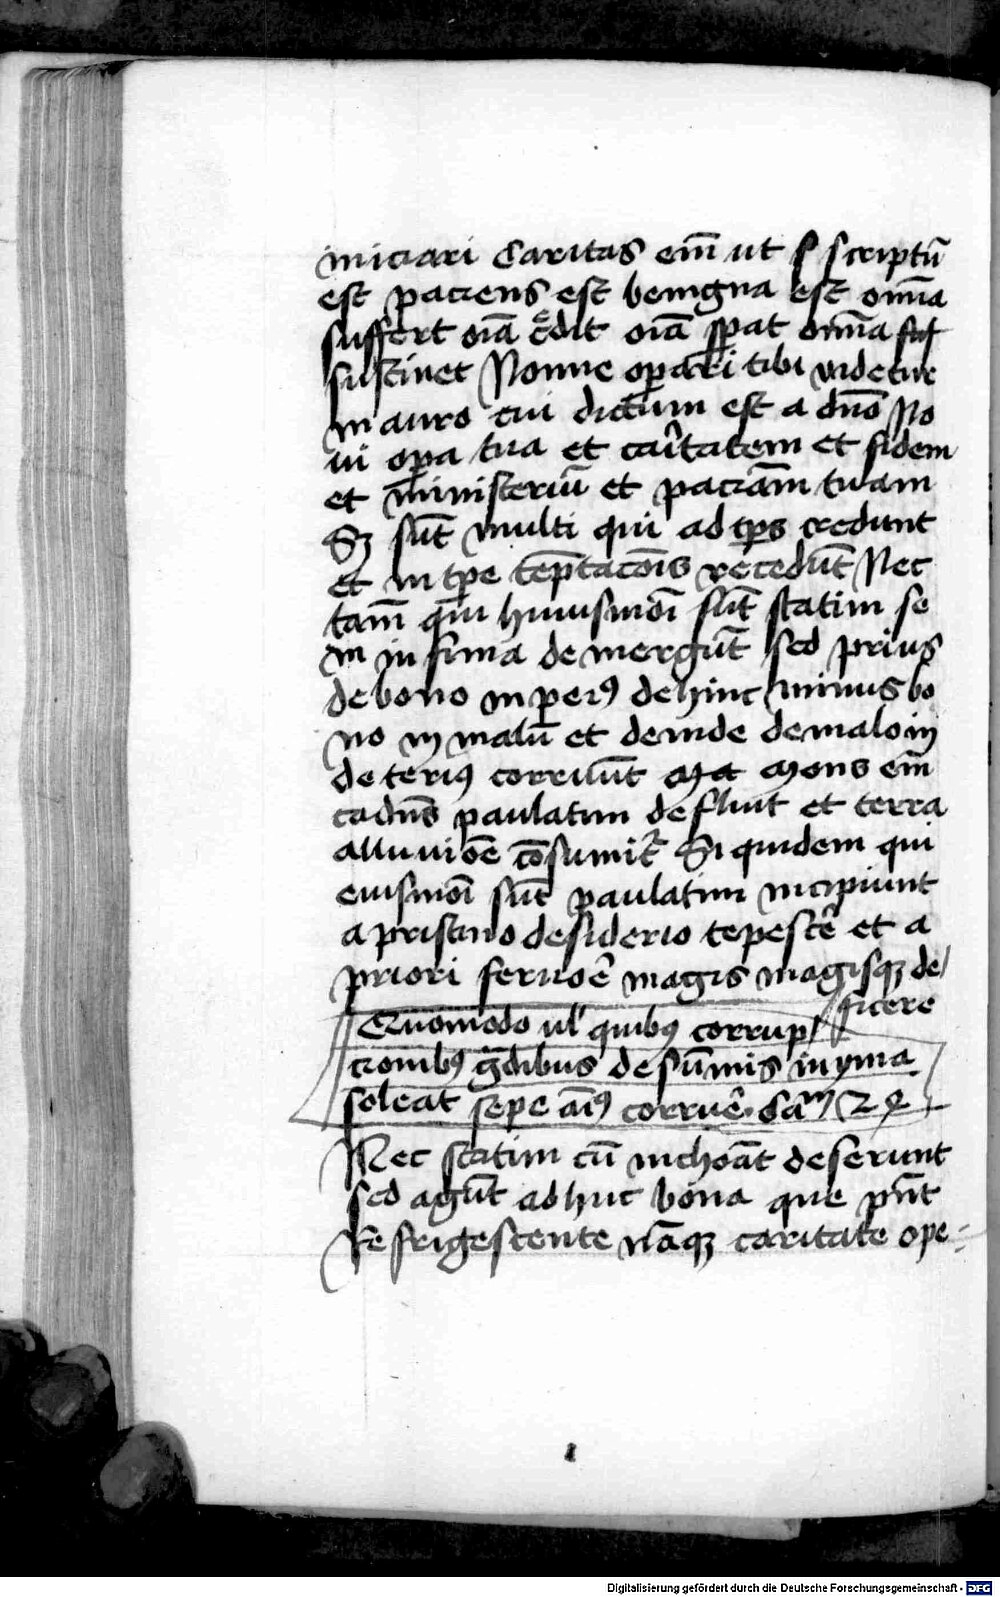 iniciari Caritas em̄ ut s scriptū
est paciens est benigna est om̄ia
suffert oīa c̄dit oīa sperat om̄ia
sustinet Nonne operari tibi videtur
in auro cui dictum est a dn̄o No
ui opa tua et caritatem et fidem
et ministeriū et paciām tuam
Sʒ sūt multi qui ad tp̄s credunt
et in tp̄e temptacōis recedūt Nec
tam̄ qui huiusmōi sūt statim se
in infima demergūt sed prius
de bono in peiꝰ dehinc minus bo
no in malū et deinde de malo in
deteriꝰ corruūt Mons em̄
cadēs paulatim defluit et terra
alluuiōe cōsumit᷑ Si quidem qui
eiusmōi sūt paulatim incipiunt
a pristino desiderio tepescē et a
priori feruoē magis magisqʒ de/
ficere
Quomodo ul' quibꝰ corrup/
cionibꝰ g̃dibus de sūmis in yma
soleat sepe aīꝰ corruē. Cam
Nec statim cū inchoāt deserunt
sed agūt adhuc bona que pn̄t
Refrigescente nāqʒ caritate ope-
1
Digitalisierung gefördert durch die Deutsche Forschungsgemeinschaft - DFG